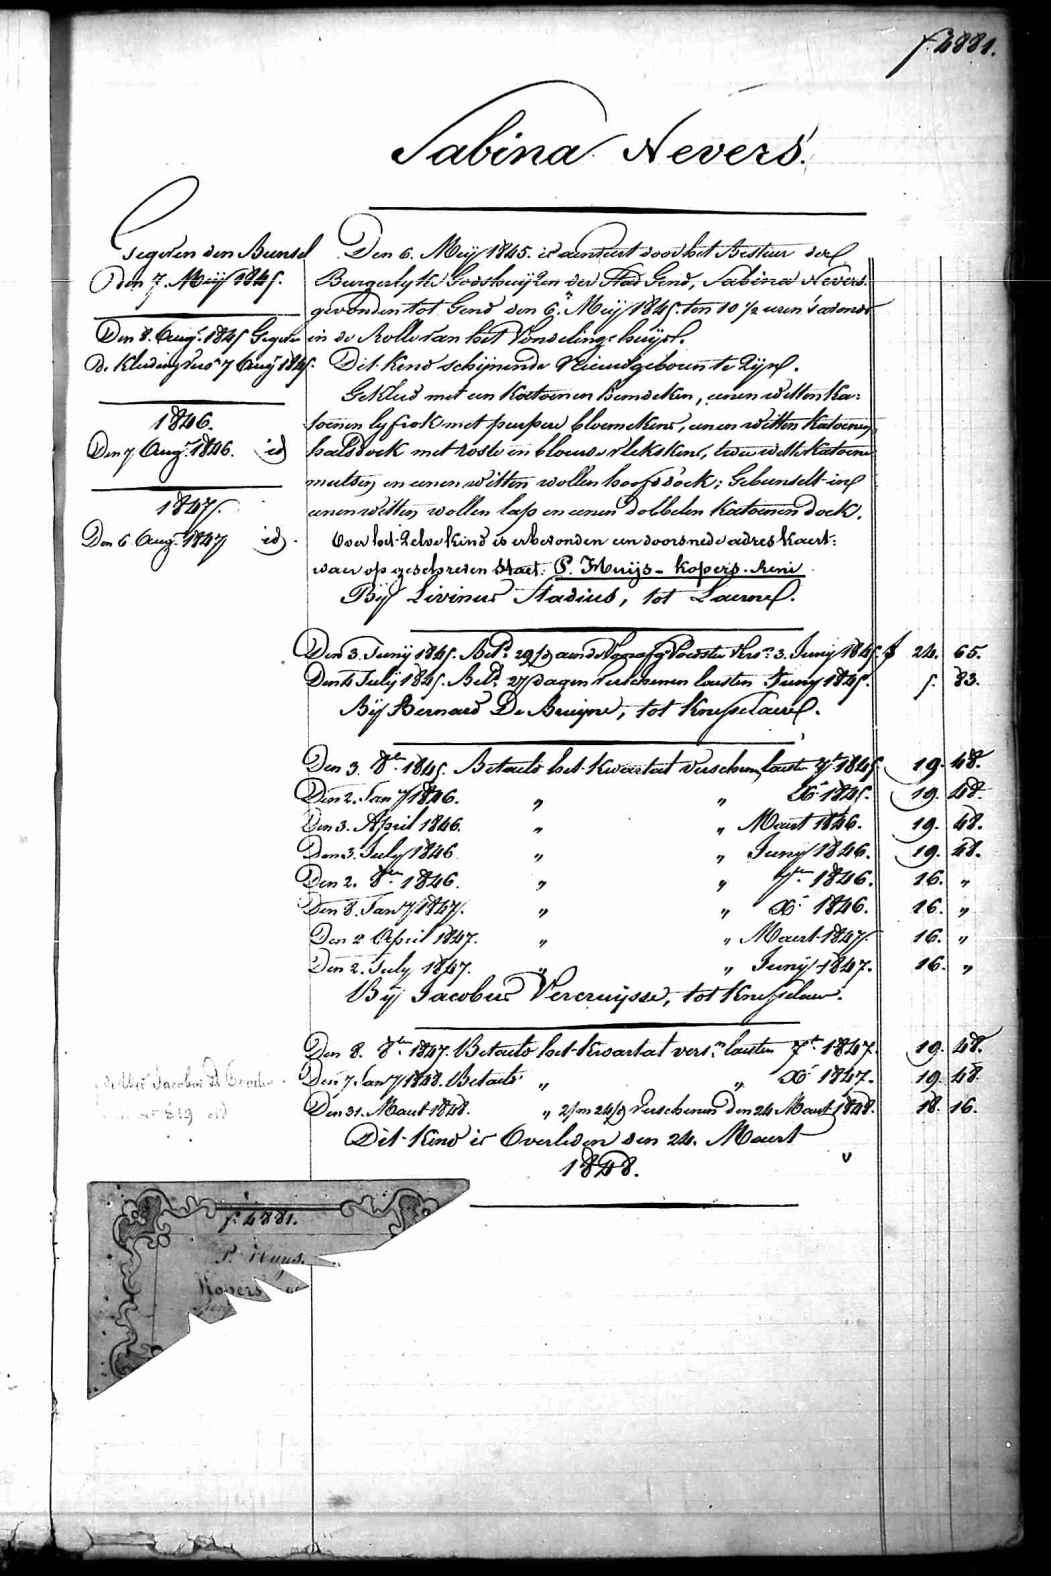 f. 4881.
Sabina Nevers.
Gegeven den Bunsel
Den 7. Meij 1845.
Den 8. Aug. 1845 Gegeven
de Kleeding vers. 7 Aug. 1845.
1846.
Den 7 Aug. 1846. id
1847.
Den 6 Aug. 1847 id.
Den 6. Meij 1845. is aenveert door het Bestuer der
Burgerlyke Godshuijzen der Stad Gend, Sabina Nevers.
gevonden tot Gend den 6. Meij 1845. ten 10 1/2 uren s'avonds
in de Rolle van het Vondelingshuijs.
Dit Kind schijnende Nieuwgeboren te Zijn.
Gekleed met een Katoenen hemdeken, eenen witten Ka:
toenen lyfrok met purpere bloemekens, eenen witten Katoenen
halsdoek met roste en blouwe vlekskens, twee witte Katoene
mutsen en eenen witten wollen hoofdoek; Gebunselt in
eenen witten wollen lap en eenen dobbelen Katoenen doek.
Over het Zelve Kind is er bevonden een doorsnede adres kaert:
waer op geschreven staet: P. Huijs - kopers. Reni
Bij Livinus Stadius, tot Laerne.
Den 3. Junij 1845. Bet. 29/d aen de Voedster Vers. 3. Junij 1845. f 24. 65.
Den 4 Julij 1845. Bet. 27 dagen verschenen lasten Junij 1845. 5. 83.
Bij Bernard De Bruijne, tot Knesselaere.
Den 3. 8e. 1845. Betaeld het Kwartat Verschen. lasten 7e 1845 19. 48.
Den 2. Jan. 1846. " " X. 1845. 19. 48.
Den 3. April 1846. " " Maert 1846. 19. 48.
Den 3. July 1846 " " Junij 1846. 19. 48.
Den 2. 8e. 1846. " " 7e 1846. 16. "
Den 8. Jan. 1847. " " X. 1846. 16. "
Den 2 April 1847. " " Maert 1847. 16. "
Den 2. July 1847. " " Junij 1847. 16. "
Bij Jacobus Vercruijsse, tot Knesselaer.
Den 8. 8e. 1847. Betaeld het Kwartat vers. lasten 7e 1847. 19. 48.
Den 7 Jan. 1848. Betaeld " " X. 1847. 19. 48
Den 31. Maert 1848. " 2/m 24/d Verschenen den 24 Maert 1848. 18. 16.
Dit Kind is Overleden den 24. Maert
1848.
f. 4881.
P. Huijs.
Kopers